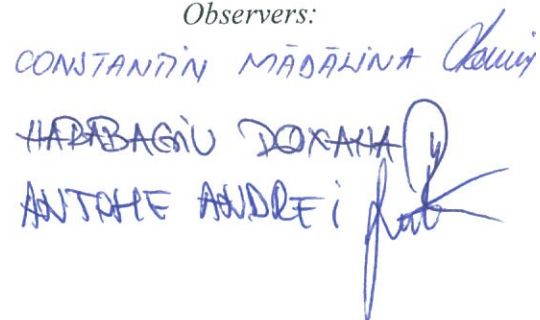 Observers:
CONSTANTIN MĂDĂLINA
HARABAGIU ROXANA
ANTOHE ANDREI